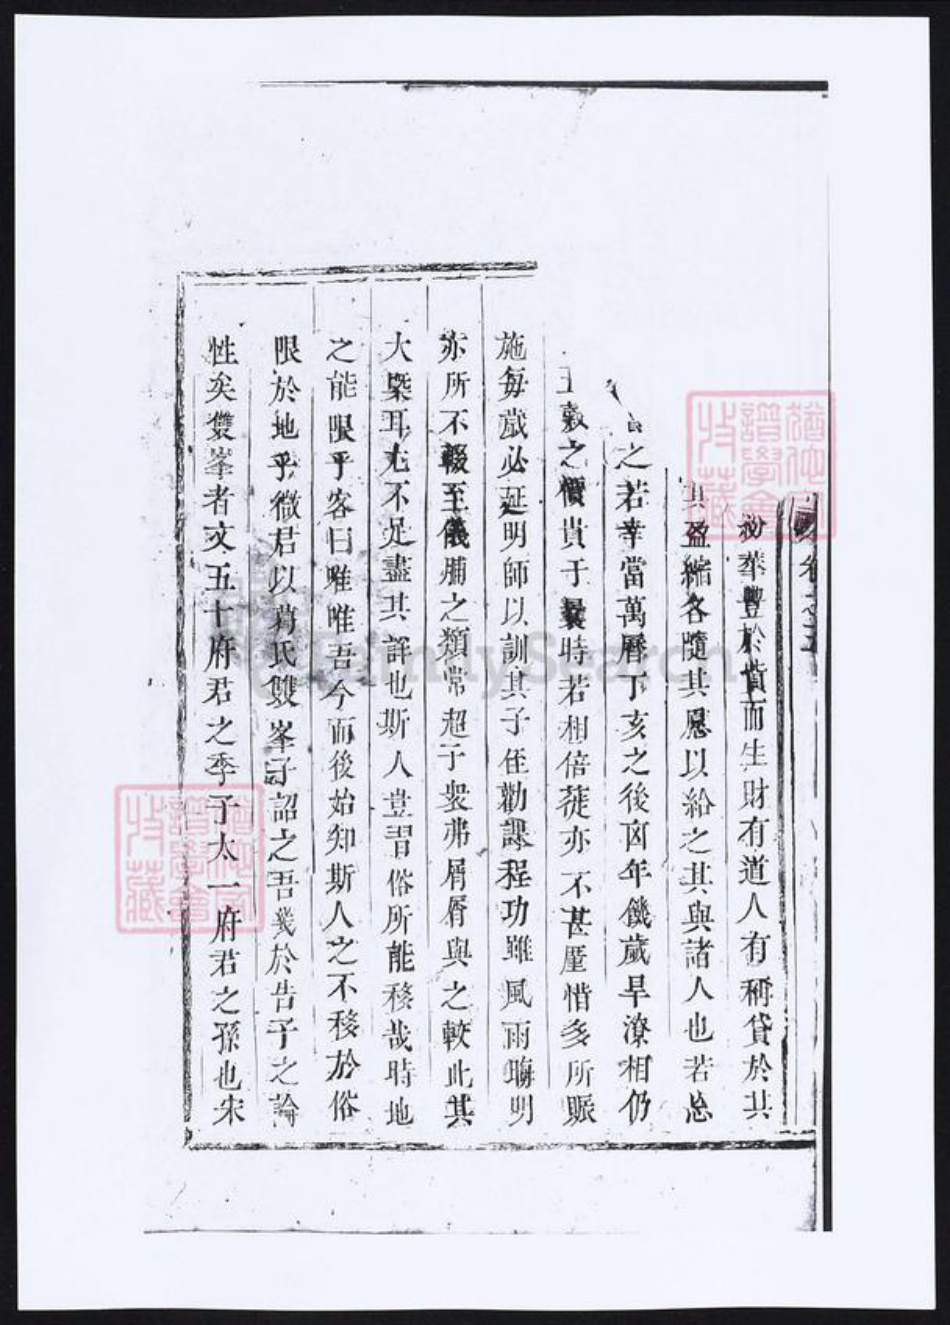 卷之五
紛華豐於積而生財有道人有稱貸於其
其盈縮各隨其愿以給之其與諸人也若怂
之若幸當萬曆丁亥之後凶年饑歲旱潦相仍
五穀之價貴于曩時若相倍蓰亦不甚廑惜多所賑
施每歲必延明師以訓其子侄勸課程功雖風雨晦明
亦所不輟至儀脯之類常超于衆弗屑屑與之較此其
大槩耳尤不足盡其詳也斯人豈習俗所能移哉時地
之能限乎客曰唯唯吾今而後始知斯人之不移於俗
限於地乎徵君以葛氏雙峯子詔之吾幾於告子之論
性矣雙峯者文五十府君之季子太一府君之孫也宋
猶他家譜學會收藏
猶他家譜學會收藏
FamilySearch